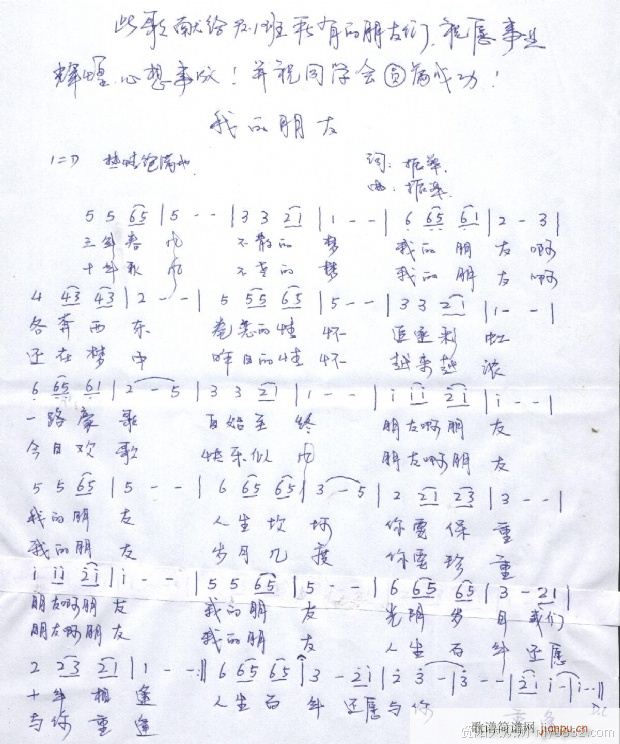 此歌献给友班所有的朋友们,祝愿事业
辉煌,心想事成!并祝同学会圆满成功!
我的朋友
1=D 热情饱满的
词:振华
曲:振华
5 5 65 | 5 - - | 3 3 21 | 1 - - | 6 65 61 | 2 - 3 |
三年春风 不散的梦 我的朋友啊
十年歌风 不老的梦 我的朋友啊
4 43 43 | 2 - - | 5 55 65 | 5 - - | 3 3 21 | 1 - - |
各奔西东 眷恋的情怀 追逐彩虹
还在梦中 昨日的情怀 越来越浓
6 65 61 | 2 - 5 | 3 3 21 | 1 - - | i ii 2i | i - - |
一路高歌 自始至终 朋友啊朋友
今日欢歌 快乐似风 朋友啊朋友
5 5 65 | 5 - - | 6 65 65 | 3 - 5 | 2 21 23 | 3 - - |
我的朋友 人生坎坷 你要保重
我的朋友 岁月几度 你要珍重
i ii 2i | i - - | 5 5 65 | 5 - - | 6 65 65 | 3 - 21 |
朋友啊朋友 我的朋友 光阴岁月我们
朋友啊朋友 我的朋友 人生百年还愿
2 23 21 | 1 - - :|| 6 65 65 | 3 - 2i | 2 3 - | 3 - - | 2i i - | i - - ||
十年相逢 人生百年还愿与你 重逢
与你重逢
D.C
歌谱简谱网
jianpu.cn